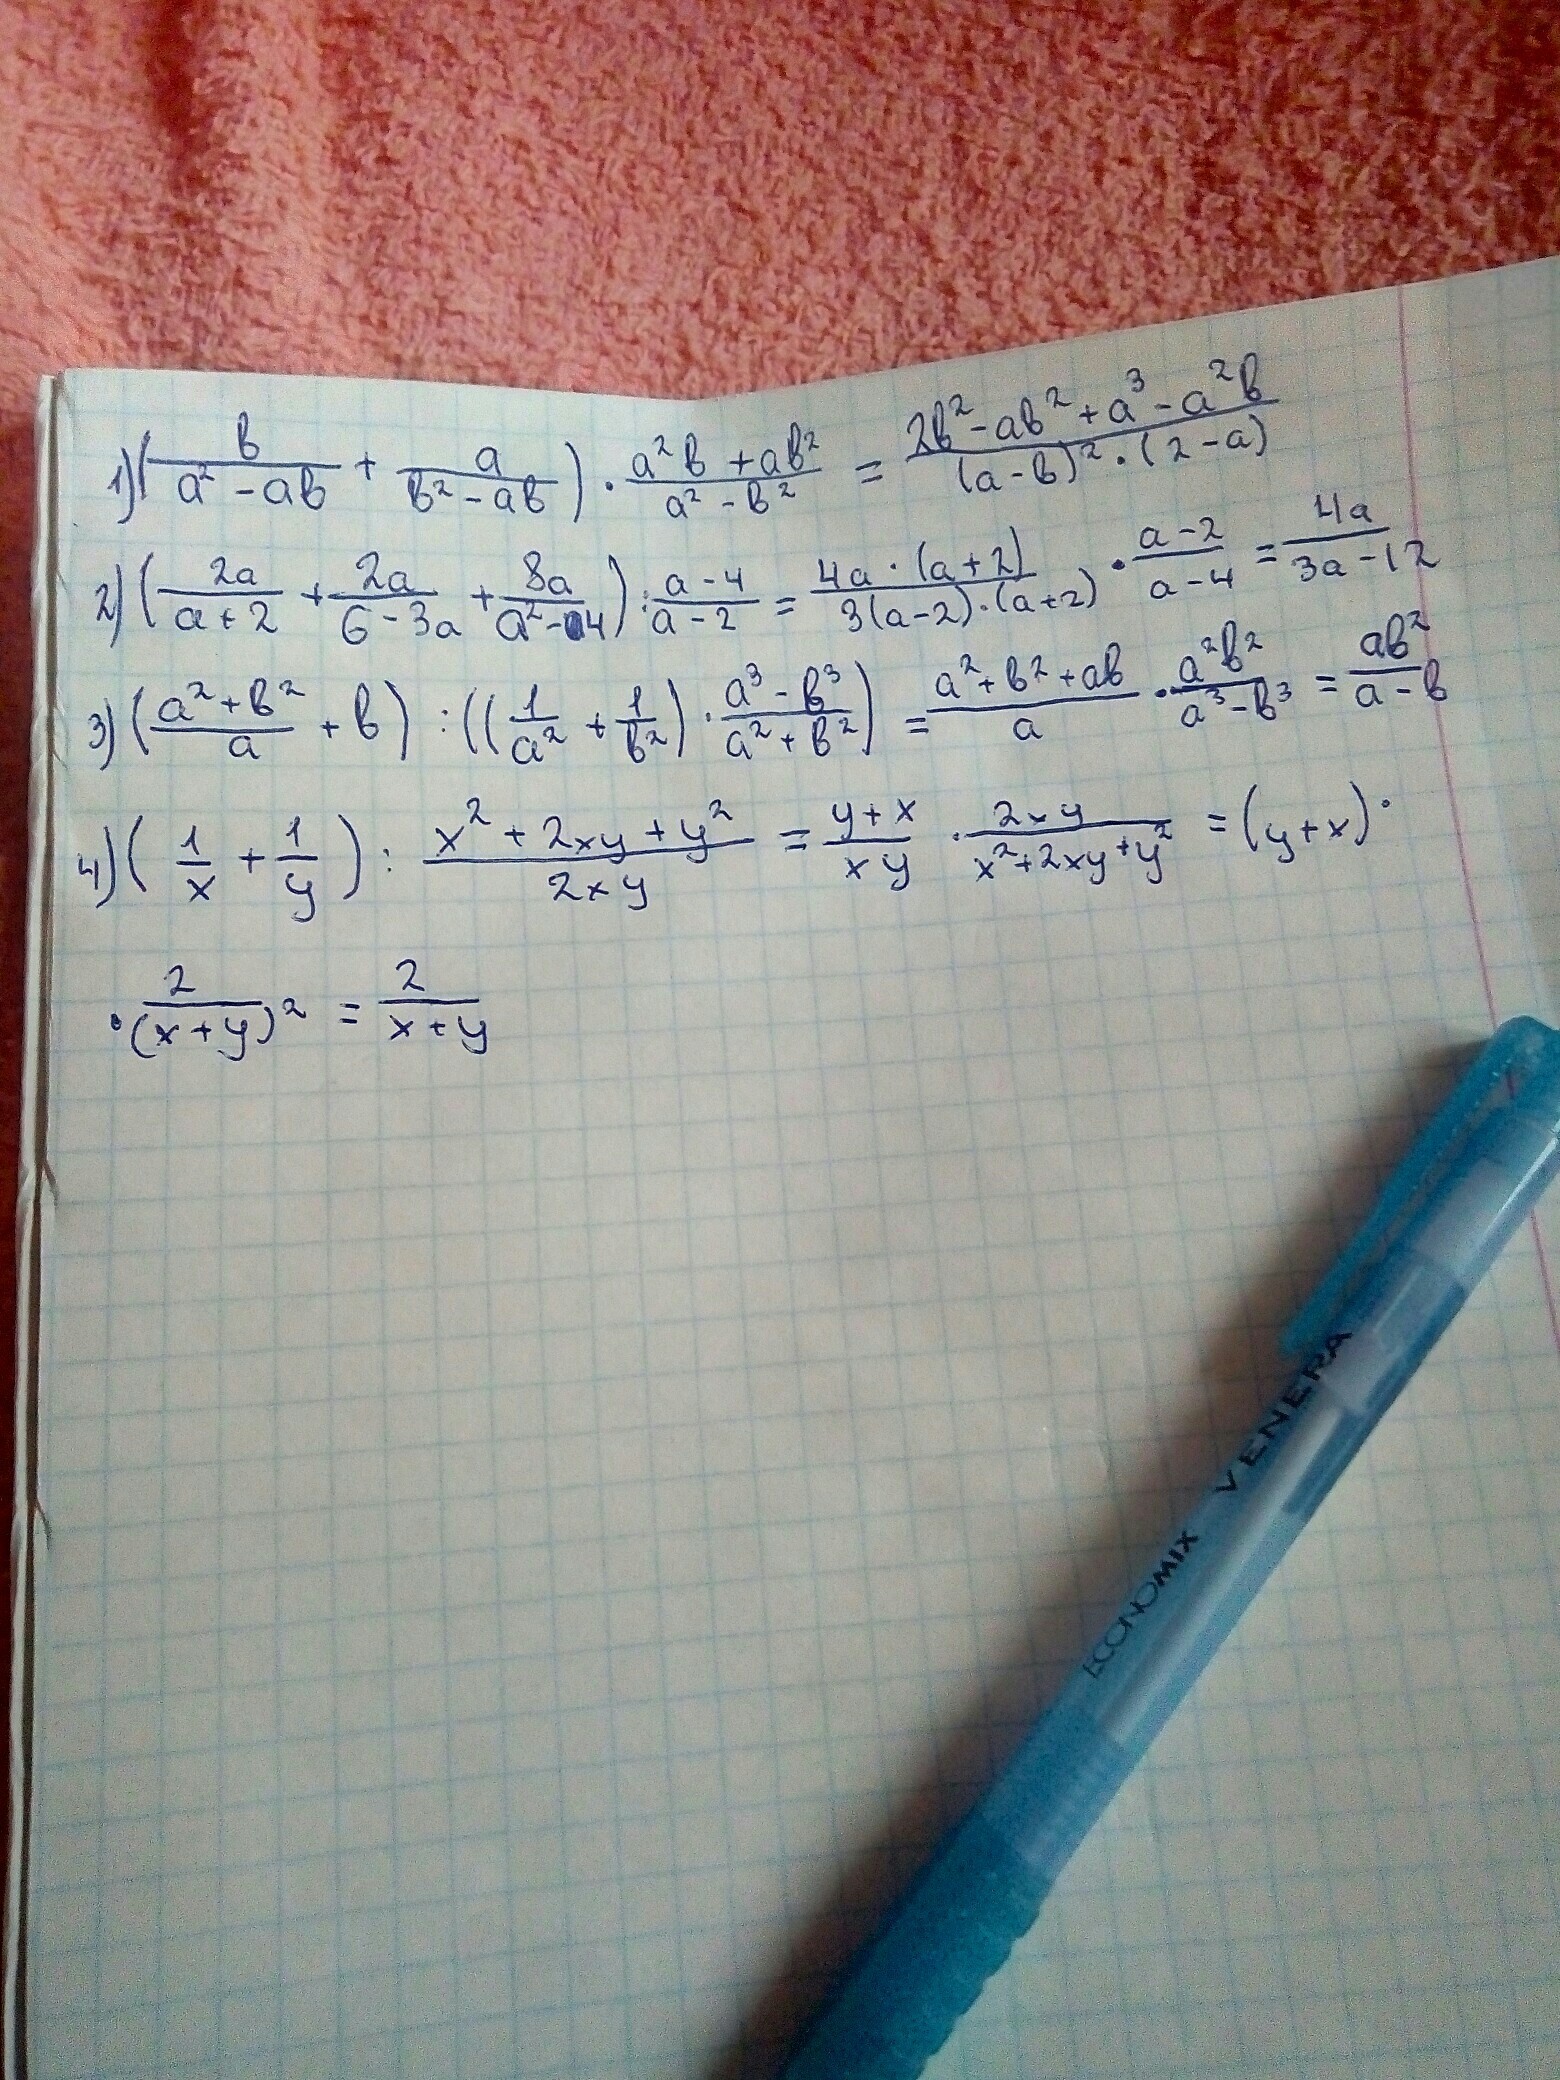 1) (в/(a² - aв) + a/(в² - aв)) · (a²в + aв²)/(a² - в²) = (2в² - aв² + a³ - a²в)/((a-в)² · (2-a))
2) (2a/(a+2) + 2a/(6-3a) + 8a/(a²-4)) : (a-4)/(a-2) = (4a·(a+2))/(3(a-2)·(a+2)) · (a-2)/(a-4) = 4a/(3a-12)
3) ((a²+в²)/a + в) : ((1/a² + 1/в²) · (a³-в³)/(a²+в²)) = (a²+в²+aв)/a · a²в²/(a³-в³) = aв²/(a-в)
4) (1/x + 1/y) : (x²+2xy+y²)/(2xy) = (y+x)/(xy) · 2xy/(x²+2xy+y²) = (y+x) ·
· 2/(x+y)² = 2/(x+y)
ECONOMIX VENERA